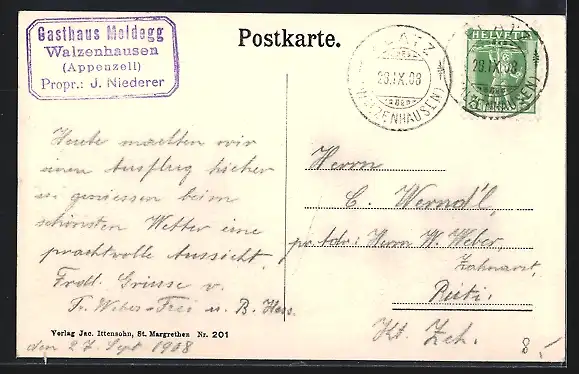 Gasthaus Meldegg
Walzenhausen
(Appenzell)
Propr.: J. Niederer
Postkarte.
PLATZ
28.IX.08
(WALZENHAUSEN)
HELVETIA
28.IX.08
(WALZENHAUSEN)
Heute machten wir
einen Ausflug hieher
u. geniessen beim
schönsten Wetter eine
prachtvolle Aussicht.
Frdl. Grüsse v.
Fr. Weber-Frei u. B. Hess.
Herrn
C. Werndl,
pr. Adr: Herrn W. Weber,
Zahnarzt,
Rüti.
Kt. Zch.
Verlag Jac. Ittensohn, St. Margrethen Nr. 201
den 27. Sept 1908
8.-